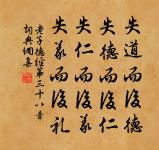 失道而後德
失德而後仁
失仁而後義
失義而後礼
老子德經第三十八章
詞典網集